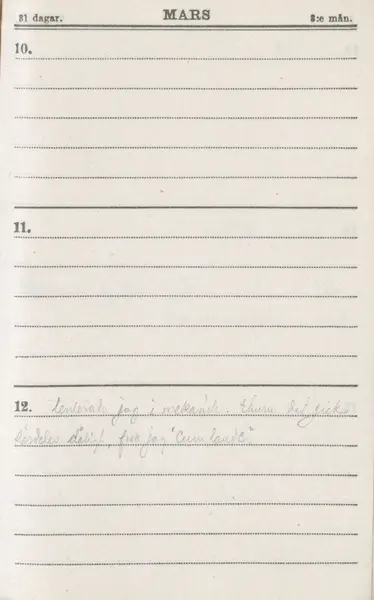 31 dagar. MARS 3:e mån.
10.
11.
12. Tenterade jag i mekanik. Ehuru det gick
särdeles dåligt, fick jag "Cum laude"